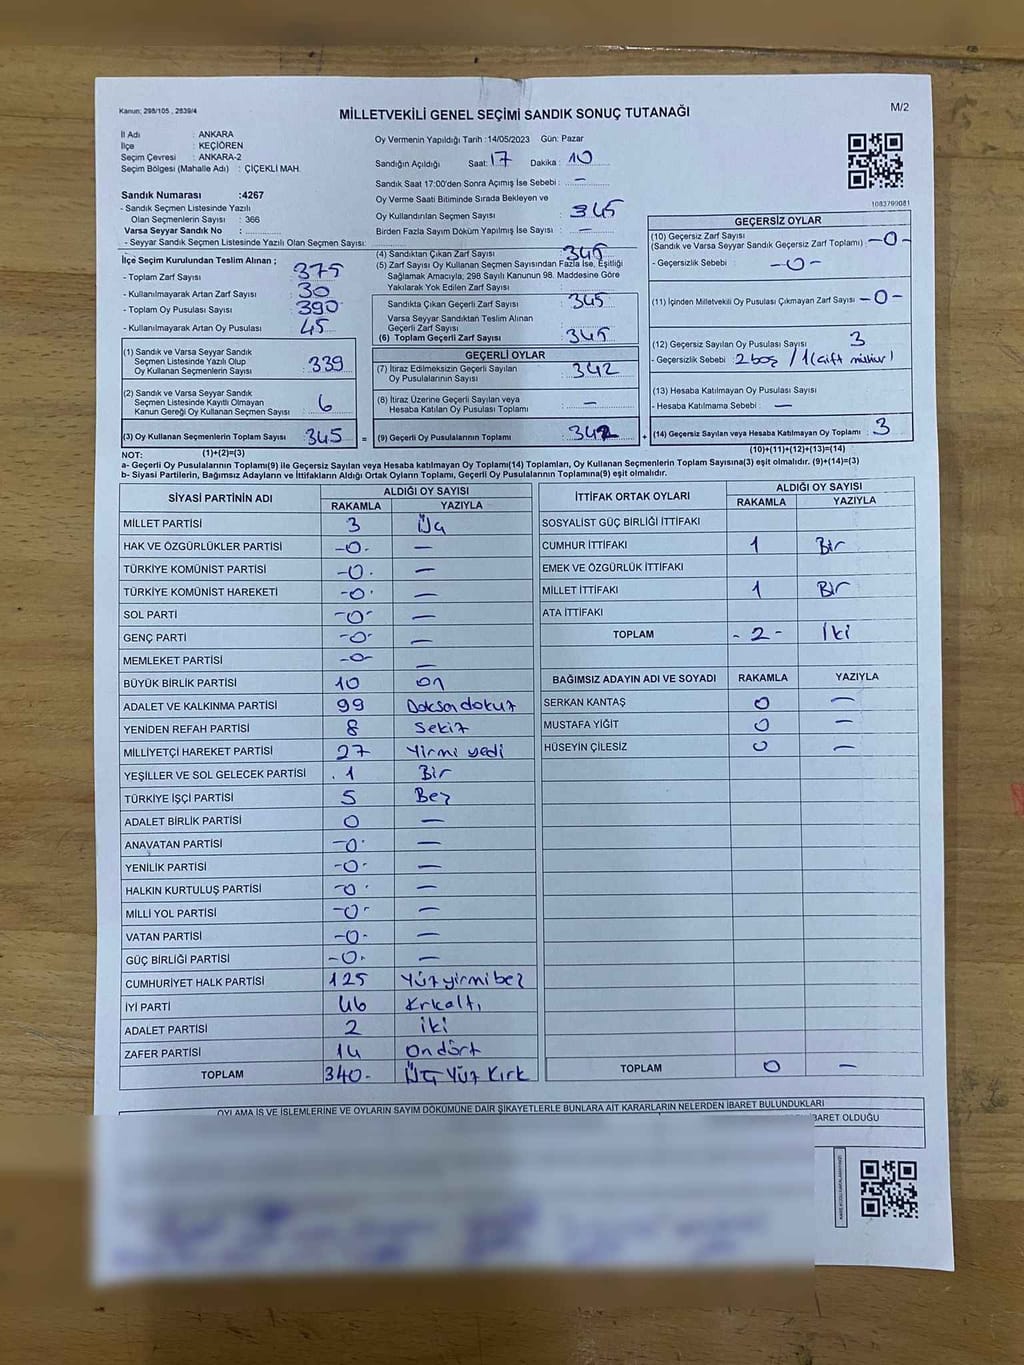 Kanun; 298/105 , 2839/4
MİLLETVEKİLİ GENEL SEÇİMİ SANDIK SONUÇ TUTANAĞI
M/2
İl Adı : ANKARA
İlçe : KEÇİÖREN
Seçim Çevresi : ANKARA-2
Seçim Bölgesi (Mahalle Adı) : ÇİÇEKLİ MAH.
Sandık Numarası :4267
- Sandık Seçmen Listesinde Yazılı
Olan Seçmenlerin Sayısı : 366
Varsa Seyyar Sandık No :
- Seyyar Sandık Seçmen Listesinde Yazılı Olan Seçmen Sayısı:
İlçe Seçim Kurulundan Teslim Alınan ;
- Toplam Zarf Sayısı : 375
- Kullanılmayarak Artan Zarf Sayısı : 30
- Toplam Oy Pusulası Sayısı : 390
- Kullanılmayarak Artan Oy Pusulası : 45
(1) Sandık ve Varsa Seyyar Sandık
Seçmen Listesinde Yazılı Olup
Oy Kullanan Seçmenlerin Sayısı : 339
(2) Sandık ve Varsa Seyyar Sandık
Seçmen Listesinde Kayıtlı Olmayan
Kanun Gereği Oy Kullanan Seçmen Sayısı : 6
(3) Oy Kullanan Seçmenlerin Toplam Sayısı : 345 =
(1)+(2)=(3)
Oy Vermenin Yapıldığı Tarih :14/05/2023 Gün: Pazar
Sandığın Açıldığı Saat: 17 Dakika : 10
Sandık Saat 17:00'den Sonra Açımış İse Sebebi : -
Oy Verme Saati Bitiminde Sırada Bekleyen ve
Oy Kullandırılan Seçmen Sayısı : 345
Birden Fazla Sayım Döküm Yapılmış İse Sayısı : -
(4) Sandıktan Çıkan Zarf Sayısı : 345
(5) Zarf Sayısı Oy Kullanan Seçmen Sayısından Fazla İse, Eşitliği
Sağlamak Amacıyla; 298 Sayılı Kanunun 98. Maddesine Göre
Yakılarak Yok Edilen Zarf Sayısı :
Sandıkta Çıkan Geçerli Zarf Sayısı : 345
Varsa Seyyar Sandıktan Teslim Alınan
Geçerli Zarf Sayısı :
(6) Toplam Geçerli Zarf Sayısı : 345
GEÇERLİ OYLAR
(7) İtiraz Edilmeksizin Geçerli Sayılan
Oy Pusulalarının Sayısı : 342
(8) İtiraz Üzerine Geçerli Sayılan veya
Hesaba Katılan Oy Pusulası Toplamı : -
(9) Geçerli Oy Pusulalarının Toplamı : 342 +
1083799081
GEÇERSİZ OYLAR
(10) Geçersiz Zarf Sayısı
(Sandık ve Varsa Seyyar Sandık Geçersiz Zarf Toplamı) : -0-
- Geçersizlik Sebebi : -0-
(11) İçinden Milletvekili Oy Pusulası Çıkmayan Zarf Sayısı : -0-
(12) Geçersiz Sayılan Oy Pusulası Sayısı : 3
- Geçersizlik Sebebi : 2 boş / 1 (çift mühür)
(13) Hesaba Katılmayan Oy Pusulası Sayısı
- Hesaba Katılmama Sebebi : -
(14) Geçersiz Sayılan veya Hesaba Katılmayan Oy Toplamı : 3
(10)+(11)+(12)+(13)=(14)
NOT:
a- Geçerli Oy Pusulalarının Toplamı(9) ile Geçersiz Sayılan veya Hesaba katılmayan Oy Toplamı(14) Toplamları, Oy Kullanan Seçmenlerin Toplam Sayısına(3) eşit olmalıdır. (9)+(14)=(3)
b- Siyasi Partilerin, Bağımsız Adayların ve İttifakların Aldığı Ortak Oyların Toplamı, Geçerli Oy Pusulalarının Toplamına(9) eşit olmalıdır.
SİYASİ PARTİNİN ADI ALDIĞI OY SAYISI
RAKAMLA YAZIYLA
MİLLET PARTİSİ 3 Üç
HAK VE ÖZGÜRLÜKLER PARTİSİ -0- -
TÜRKİYE KOMÜNİST PARTİSİ -0- -
TÜRKİYE KOMÜNİST HAREKETİ -0- -
SOL PARTİ -0- -
GENÇ PARTİ -0- -
MEMLEKET PARTİSİ -0- -
BÜYÜK BİRLİK PARTİSİ 10 on
ADALET VE KALKINMA PARTİSİ 99 Doksandokuz
YENİDEN REFAH PARTİSİ 8 Sekiz
MİLLİYETÇİ HAREKET PARTİSİ 27 Yirmi yedi
YEŞİLLER VE SOL GELECEK PARTİSİ 1 Bir
TÜRKİYE İŞÇİ PARTİSİ 5 Beş
ADALET BİRLİK PARTİSİ 0 -
ANAVATAN PARTİSİ -0- -
YENİLİK PARTİSİ -0- -
HALKIN KURTULUŞ PARTİSİ -0- -
MİLLİ YOL PARTİSİ -0- -
VATAN PARTİSİ -0- -
GÜÇ BİRLİĞİ PARTİSİ -0- -
CUMHURİYET HALK PARTİSİ 125 Yüzyirmibeş
İYİ PARTİ 46 Kırkaltı
ADALET PARTİSİ 2 iki
ZAFER PARTİSİ 14 Ondört
TOPLAM 340- Üç Yüz Kırk
İTTİFAK ORTAK OYLARI ALDIĞI OY SAYISI
RAKAMLA YAZIYLA
SOSYALİST GÜÇ BİRLİĞİ İTTİFAKI
CUMHUR İTTİFAKI 1 Bir
EMEK VE ÖZGÜRLÜK İTTİFAKI
MİLLET İTTİFAKI 1 Bir
ATA İTTİFAKI
TOPLAM -2- İki
BAĞIMSIZ ADAYIN ADI VE SOYADI RAKAMLA YAZIYLA
SERKAN KANTAŞ 0 -
MUSTAFA YİĞİT 0 -
HÜSEYİN ÇİLESİZ 0 -
TOPLAM 0 -
OYLAMA İŞ VE İŞLEMLERİNE VE OYLARIN SAYIM DÖKÜMÜNE DAİR ŞİKAYETLERLE BUNLARA AİT KARARLARIN NELERDEN İBARET BULUNDUKLARI
İBARET OLDUĞU